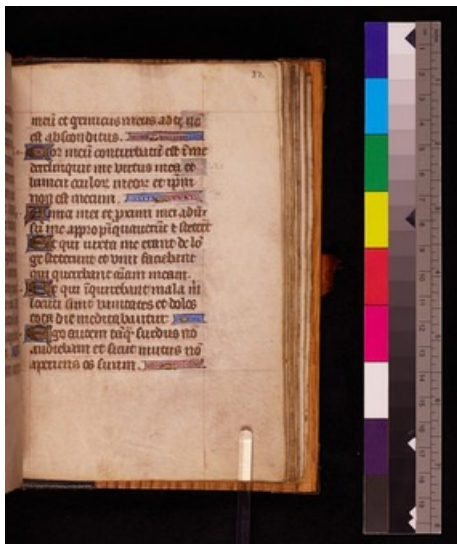 37.
meū et gemitus meus ad te nō
est absconditus.
Cor meū conturbatū est ī me
dereliquit me virtus mea et
lumen oculoꝝ meoꝝ et ipm̄
non est mecum.
Amici mei et proximi mei aduer
sū me appropīquauerūt et steterūt
Et qui iuxta me erant de lō
ge steterunt et vim faciebant
qui querebant aīam meam.
Et qui īquirebant mala m̄
locuti sunt vanitates et dolos
tota die meditabantur:
Ego autem tāqͣ surdus nō
audiebam et sicut mutus nō
aperiens os suum.